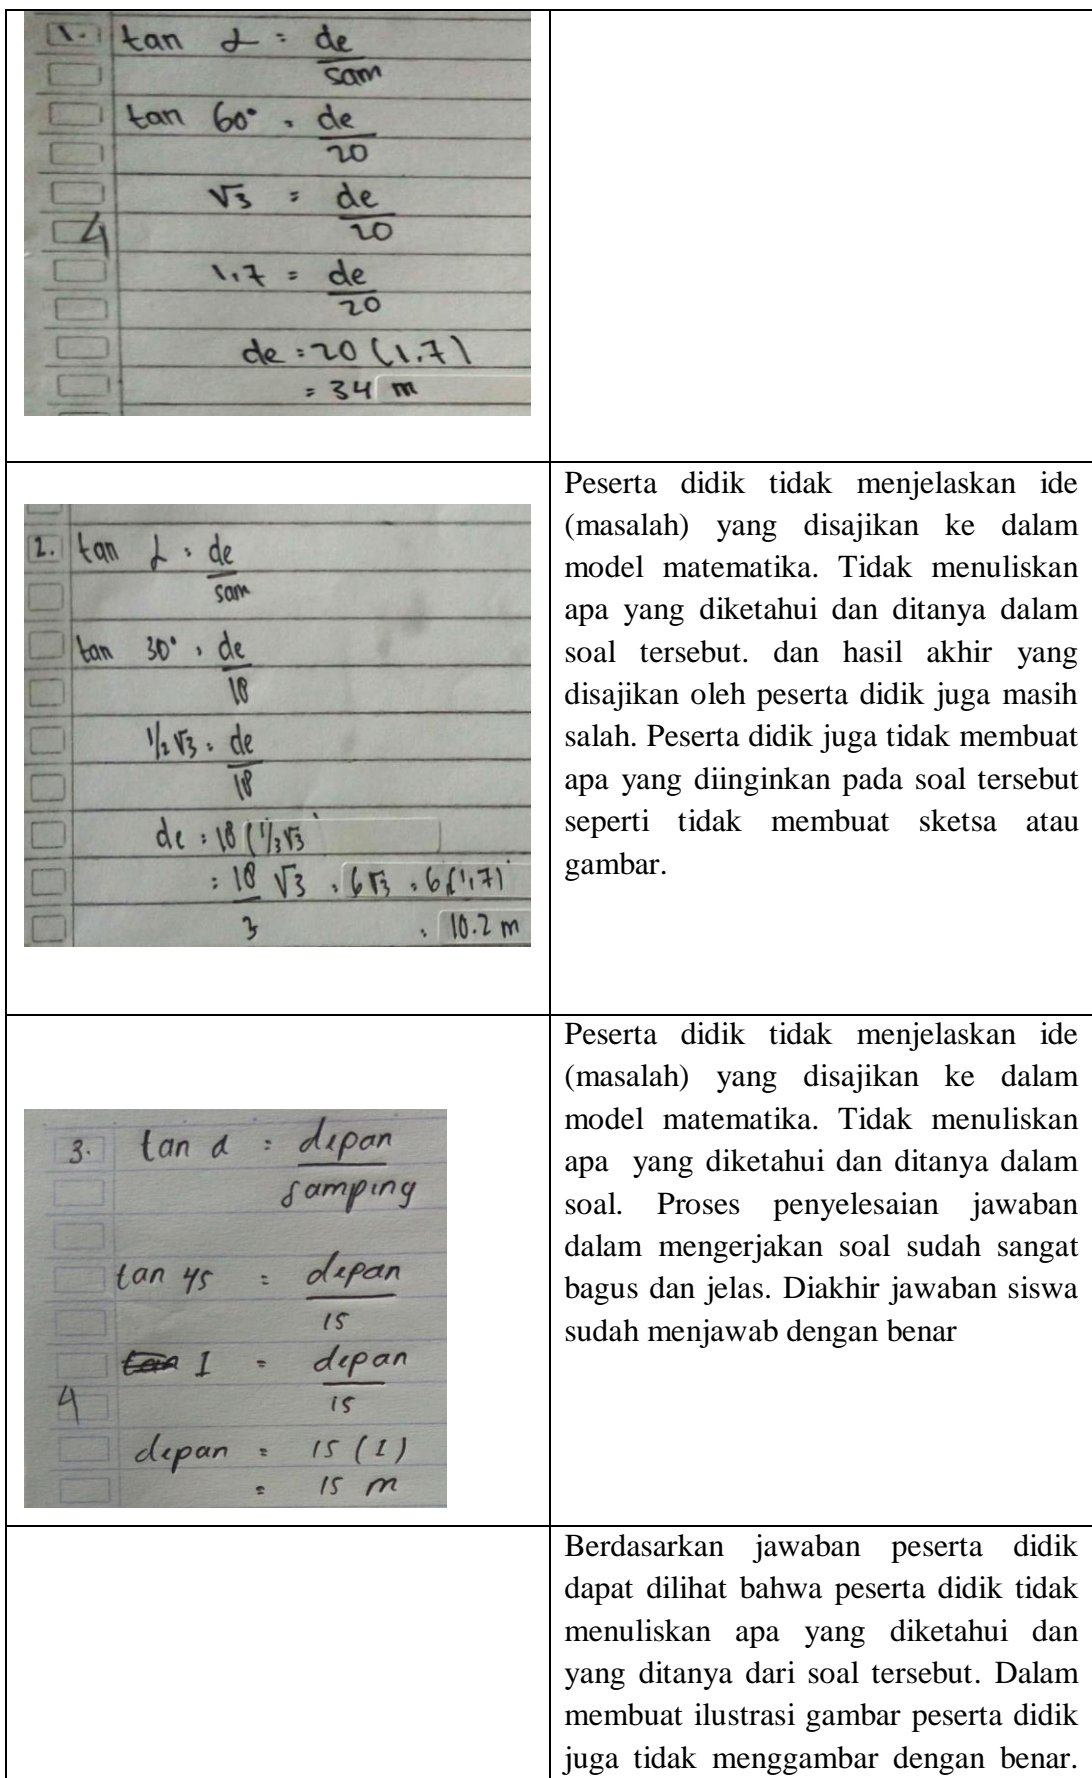 1. tan α = de
sam
tan 60° = de
20
√3 = de
20
4
1,7 = de
20
de = 20 (1.7)
= 34 m
2. tan α = de
sam
tan 30° = de
18
1/2 √3 = de
18
de = 18 (1/3 √3
= 18 √3 = 6√3 = 6(1,7)
3
= 10.2 m
Peserta didik tidak menjelaskan ide
(masalah) yang disajikan ke dalam
model matematika. Tidak menuliskan
apa yang diketahui dan ditanya dalam
soal tersebut. dan hasil akhir yang
disajikan oleh peserta didik juga masih
salah. Peserta didik juga tidak membuat
apa yang diinginkan pada soal tersebut
seperti tidak membuat sketsa atau
gambar.
3. tan α = depan
samping
tan 45 = depan
15
tan 1 = depan
15
4
depan = 15 (1)
= 15 m
Peserta didik tidak menjelaskan ide
(masalah) yang disajikan ke dalam
model matematika. Tidak menuliskan
apa yang diketahui dan ditanya dalam
soal. Proses penyelesaian jawaban
dalam mengerjakan soal sudah sangat
bagus dan jelas. Diakhir jawaban siswa
sudah menjawab dengan benar
Berdasarkan jawaban peserta didik
dapat dilihat bahwa peserta didik tidak
menuliskan apa yang diketahui dan
yang ditanya dari soal tersebut. Dalam
membuat ilustrasi gambar peserta didik
juga tidak menggambar dengan benar.